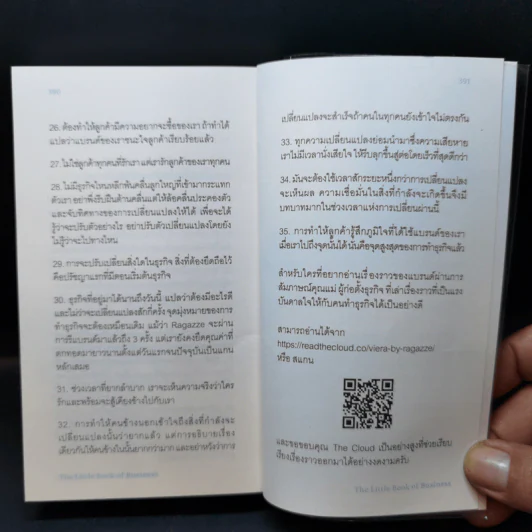 26. ต้องทำให้ลูกค้ามีความอยากจะซื้อของเรา ถ้าทำได้
แปลว่าแบรนด์ของเราชนะใจลูกค้าเรียบร้อยแล้ว
27. ไม่ใช่ลูกค้าทุกคนที่รักเรา แต่เรารักลูกค้าของเราทุกคน
28. ไม่มีธุรกิจไหนหลีกพ้นคลื่นลูกใหญ่ที่เข้ามากระแทก
ตัวเรา อย่าฝืนรับฝืนต้านคลื่นแต่ให้ล้อคลื่นประคองตัว
และจับทิศทางของการเปลี่ยนแปลงให้ได้ เพื่อจะได้
รู้ว่าจะปรับตัวอย่างไร อย่าปรับตัวเปลี่ยนแปลงโดยยัง
ไม่รู้ว่าจะไปทางไหน
29. การจะปรับเปลี่ยนสิ่งใดในธุรกิจ สิ่งที่ต้องยึดถือไว้
คือปรัชญาแรกที่มีตอนเริ่มต้นธุรกิจ
30. ธุรกิจที่อยู่มาได้นานถึงวันนี้ แปลว่าต้องมีอะไรดี
และไม่ว่าจะเปลี่ยนแปลงสักกี่ครั้ง จุดมุ่งหมายของการ
ทำธุรกิจจะต้องเหมือนเดิม แม้ว่า Ragazze จะผ่าน
การรีแบรนด์มาแล้วถึง 3 ครั้ง แต่เรายังคงยึดคุณค่าที่
ตกทอดมายาวนานตั้งแต่วันแรกจนปัจจุบันเป็นแกน
หลักเสมอ
31. ช่วงเวลาที่ยากลำบาก เราจะเห็นความจริงว่าใคร
รักและพร้อมจะสู้เคียงข้างไปกับเรา
32. การทำให้คนข้างนอกเข้าใจถึงสิ่งที่กำลังจะ
เปลี่ยนแปลงนั้นว่ายากแล้ว แต่การอธิบายเรื่อง
เดียวกันให้คนข้างในนั้นยากกว่ามาก และอย่าหวังว่าการ
The Little Book of Business
เปลี่ยนแปลงจะสำเร็จถ้าคนในทุกคนยังเข้าใจไม่ตรงกัน
33. ทุกความเปลี่ยนแปลงย่อมนำมาซึ่งความเสียหาย
เราไม่มีเวลานั่งเสียใจ ให้รีบลุกขึ้นสู้ต่อโดยเร็วที่สุดดีกว่า
34. มันจะต้องใช้เวลาสักระยะหนึ่งกว่าการเปลี่ยนแปลง
จะเห็นผล ความเชื่อมั่นในสิ่งที่กำลังจะเกิดขึ้นจึงมี
บทบาทมากในช่วงเวลาแห่งการเปลี่ยนผ่านนี้
35. การทำให้ลูกค้ารู้สึกภูมิใจที่ได้ใช้แบรนด์ของเรา
เมื่อเราไปถึงจุดนั้นได้นั่นคือจุดสูงสุดของการทำธุรกิจแล้ว
สำหรับใครที่อยากอ่านเรื่องราวของแบรนด์ผ่านการ
สัมภาษณ์คุณแม่ ผู้ก่อตั้งธุรกิจ ที่เล่าเรื่องราวที่เป็นแรง
บันดาลใจให้กับคนทำธุรกิจได้เป็นอย่างดี
สามารถอ่านได้จาก
https://readthecloud.co/viera-by-ragazze/
หรือ สแกน
และขอขอบคุณ The Cloud เป็นอย่างสูงที่ช่วยเรียบ
เรียงเรื่องราวออกมาได้อย่างงดงามครับ
The Little Book of Business